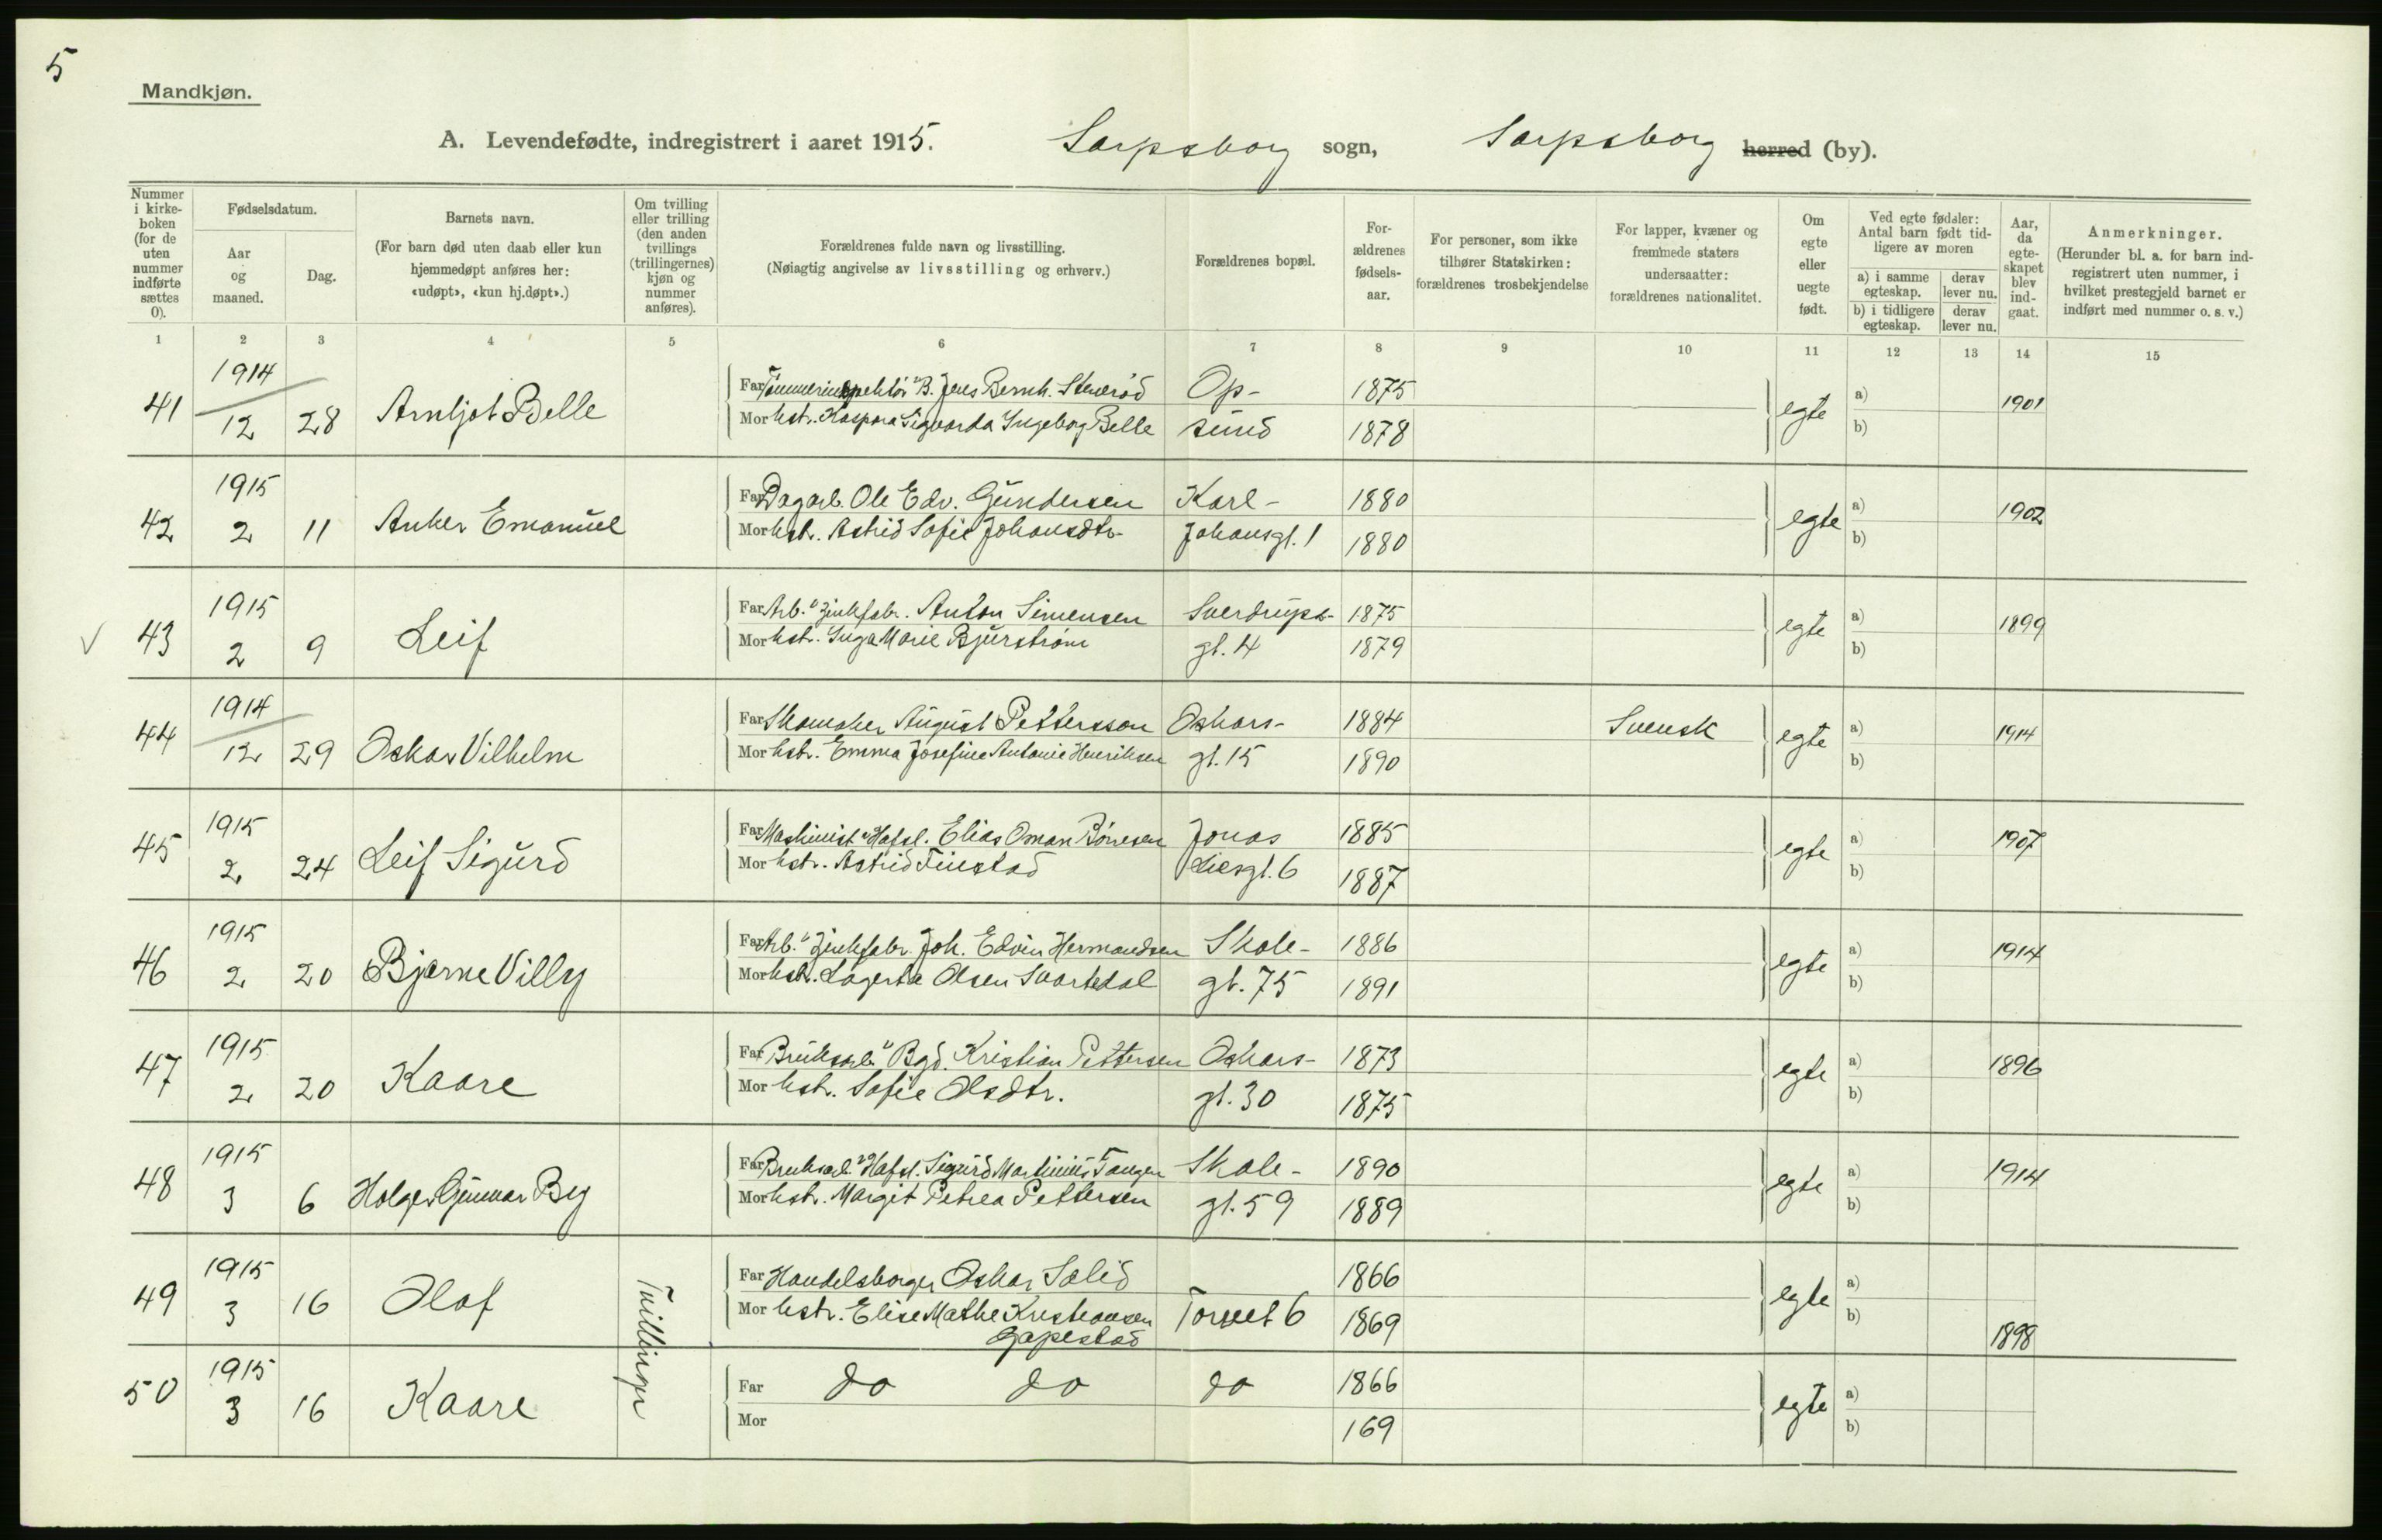 5
Mandkjøn.
A. Levendefødte, indregistrert i aaret 1915. Sarpsborg sogn, Sarpsborg herred (by).
Nummer i kirke-boken (for de uten nummer indførte sættes 0).
Fødselsdatum.
Aar og maaned.
Dag.
Barnets navn.
(For barn død uten daab eller kun hjemmedøpt anføres her: «udøpt», «kun hj.døpt».)
Om tvilling eller trilling (den anden tvillings (trillingernes) kjøn og nummer anføres).
Forældrenes fulde navn og livsstilling.
(Nøiagtig angivelse av livsstilling og erhverv.)
Forældrenes bopæl.
For-ældrenes fødsels-aar.
For personer, som ikke tilhører Statskirken: forældrenes trosbekjendelse
For lapper, kvæner og fremmede staters undersaatter: forældrenes nationalitet.
Om egte eller uegte født.
Ved egte fødsler: Antal barn født tid-ligere av moren
a) i samme egteskap.
derav lever nu.
b) i tidligere egteskap.
derav lever nu.
Aar, da egte-skapet blev ind-gaat.
Anmerkninger.
(Herunder bl. a. for barn ind-registrert uten nummer, i hvilket prestegjeld barnet er indført med nummer o. s. v.)
1 2 3 4 5 6 7 8 9 10 11 12 13 14 15
1914
41 12 28 Arnljot Belle
Far Tømmerinspektør v B. Jens Bernh. Stenrød Op- 1875
Mor hstr. Kaspara Sigvarda Ingeborg Belle sund 1878
egte a) b) 1901
1915
42 2 11 Anker Emanuel
Far Dagarb. Ole Edv. Gundersen Karl- 1880
Mor hstr. Astrid Sofie Johansdtr. Johansgt. 1 1880
egte a) b) 1902
1915
√ 43 2 9 Leif
Far Arb. v Zinkfabr. Anton Simensen Sverdrups- 1875
Mor hstr. Inga Marie Bjurstrøm gt. 4 1879
egte a) b) 1899
1914
44 12 29 Oskar Vilhelm
Far Skomaker August Pettersson Oskars- 1884
Mor hstr. Emma Josefine Antonie Henriksen gt. 15 1890
Svensk egte a) b) 1914
1915
45 2 24 Leif Sigurd
Far Maskinist v Hafsl. Elias Oman Børresen Jonas 1885
Mor hstr. Astrid Finstad Liesgt. 6 1887
egte a) b) 1907
1915
46 2 20 Bjarne Villy
Far Arb. v Zinkfabr. Joh. Edvin Hermandsen Skole- 1886
Mor hstr. Lagerta Olsen Svartedal gt. 75 1891
egte a) b) 1914
1915
47 2 20 Kaare
Far Bruksarb. v Bgd. Kristian Pettersen Oskars- 1873
Mor hstr. Sofie Olsdtr. gt. 30 1875
egte a) b) 1896
1915
48 3 6 Holger Gunnar Bey
Far Bruksarb. v Hafsl. Sigurd Martinius Tangen Skole- 1890
Mor hstr. Margit Petrea Pettersen gt. 59 1889
egte a) b) 1914
1915
49 3 16 Olaf Tvillinger
Far Handelsborger Oskar Solid 1866
Mor hstr. Elise Mathe Kristiansen Torvet 6 1869
Gapestad
egte a) b) 1898
1915
50 3 16 Kaare
Far do do do 1866
Mor 169
egte a) b)